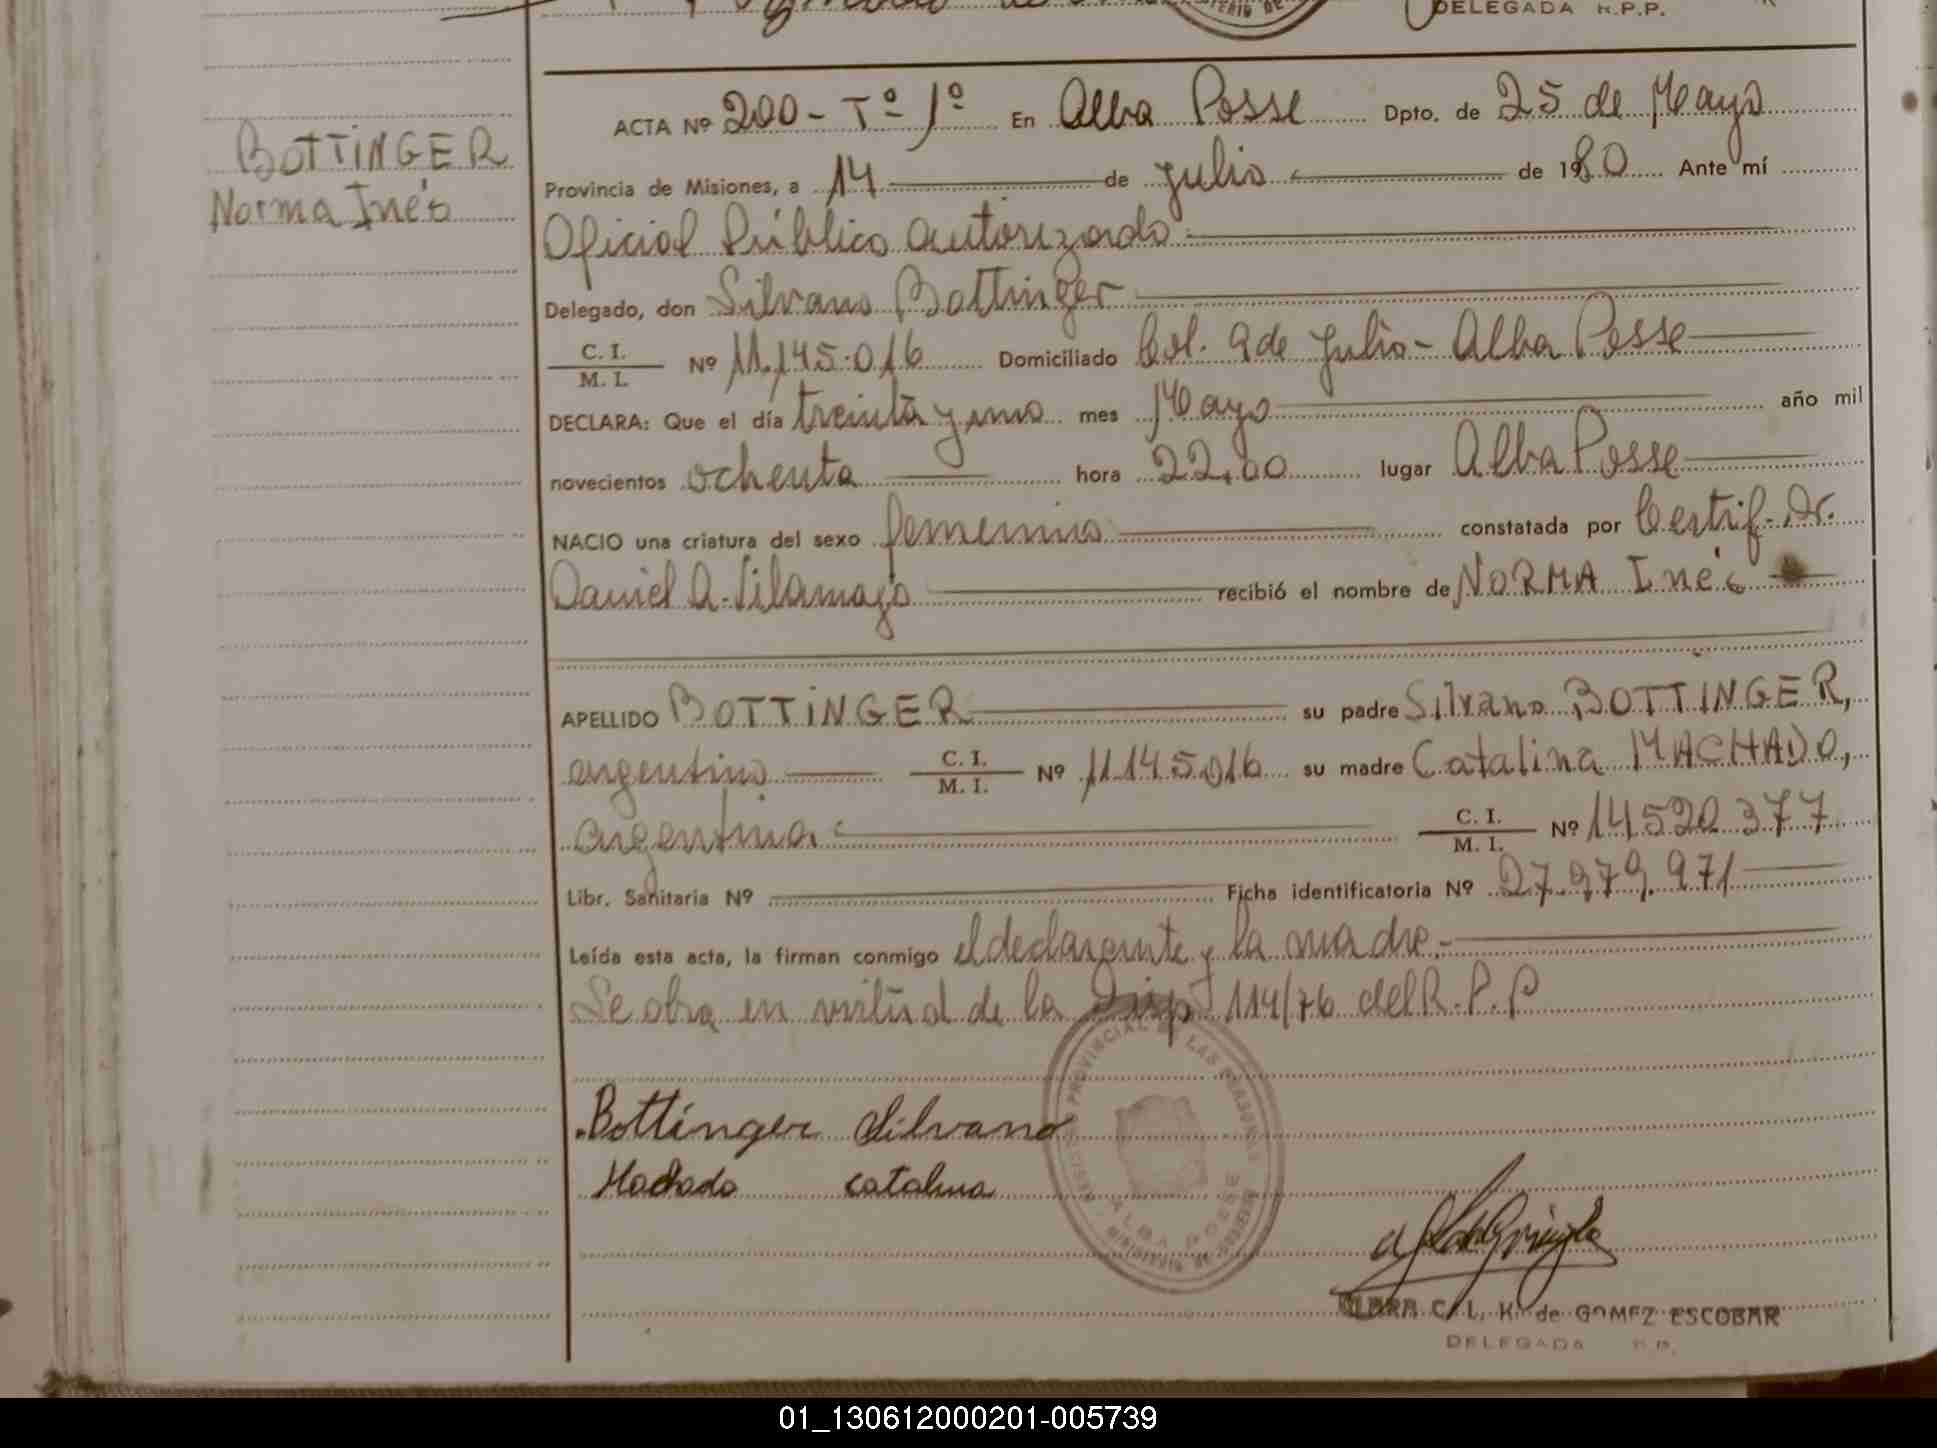 DELEGADA R.P.P.
BOTTINGER
Norma Inés
ACTA Nº 200 - Tº 1º En Alba Posse Dpto. de 25 de Mayo
Provincia de Misiones, a 14 de julio de 1980 Ante mí
Oficial Público autorizado
Delegado, don Silvano Bottinger
C. I. / M. I. Nº 11.145.016 Domiciliado Col. 9 de Julio - Alba Posse
DECLARA: Que el día treinta y uno mes Mayo año mil
novecientos ochenta hora 22,00 lugar Alba Posse
NACIO una criatura del sexo femenino constatada por Certif. Dr.
Daniel A. Vilamajo recibió el nombre de NORMA Inés
APELLIDO BOTTINGER su padre Silvano BOTTINGER,
argentino C. I. / M. I. Nº 11145.016 su madre Catalina MACHADO,
argentina. C. I. / M. I. Nº 14520377
Libr. Sanitaria Nº Ficha identificatoria Nº 27.979.971
Leída esta acta, la firman conmigo el declarante y la madre.-
Se obra en virtud de la Disp 114/76 del R.P.P
Bottinger Silvano
Machado catalina
PROVINCIAL DE LAS PERSONAS
ALBA POSSE
MINISTERIO DE GOBIERNO
CLARA C. L. K. de GOMEZ ESCOBAR
DELEGADA
01_130612000201-005739